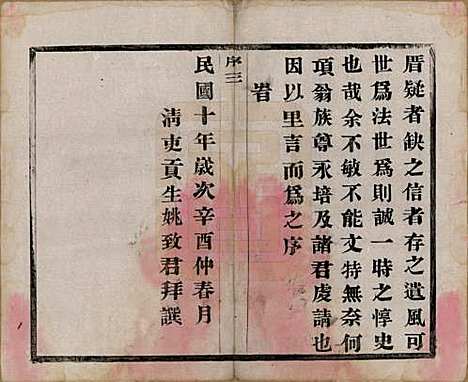 厝疑者缺之信者存之遺風可
世爲法世爲則誠一時之惇史
也哉余不敏不能文特無奈何
項翁族尊永培及諸君虔請也
因以里言而爲之序
岧
序三
民國十年歲次辛酉仲春月
清吏貢生姚致君拜譔